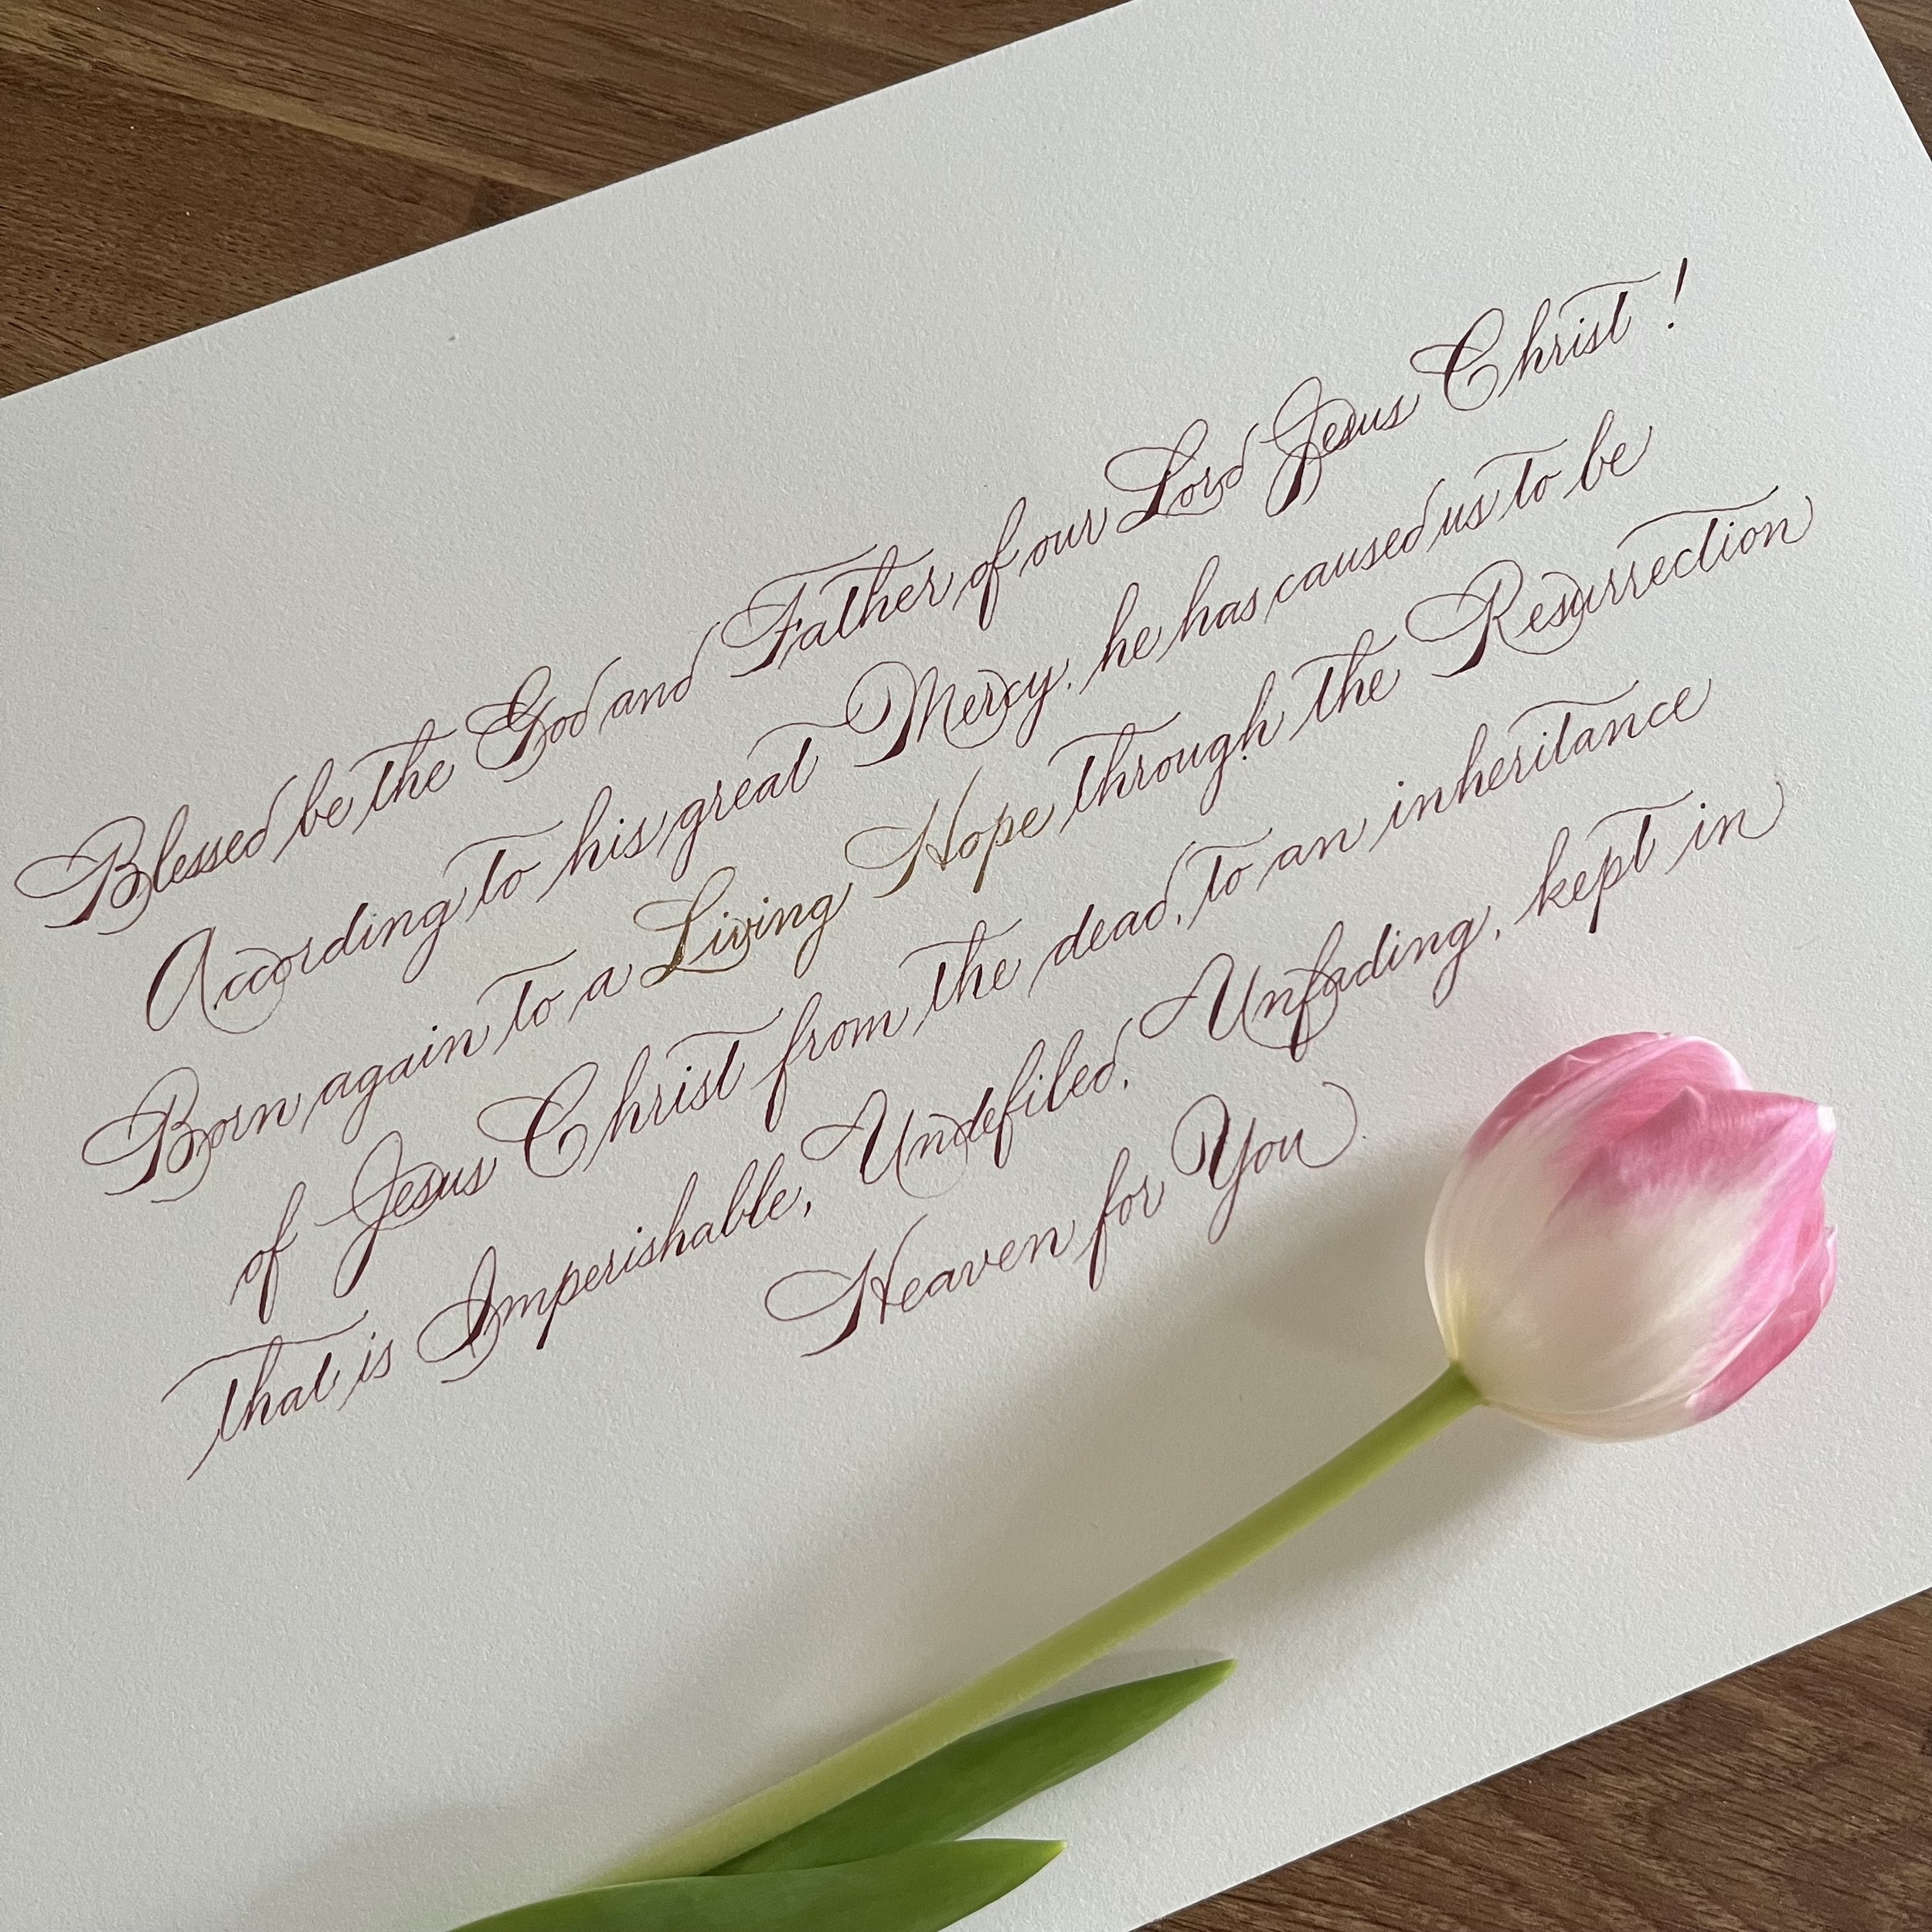 Blessed be the God and Father of our Lord Jesus Christ!
According to his great Mercy, he has caused us to be
Born again to a Living Hope through the Resurrection
of Jesus Christ from the dead, to an inheritance
that is Imperishable, Undefiled, Unfading, kept in
Heaven for You